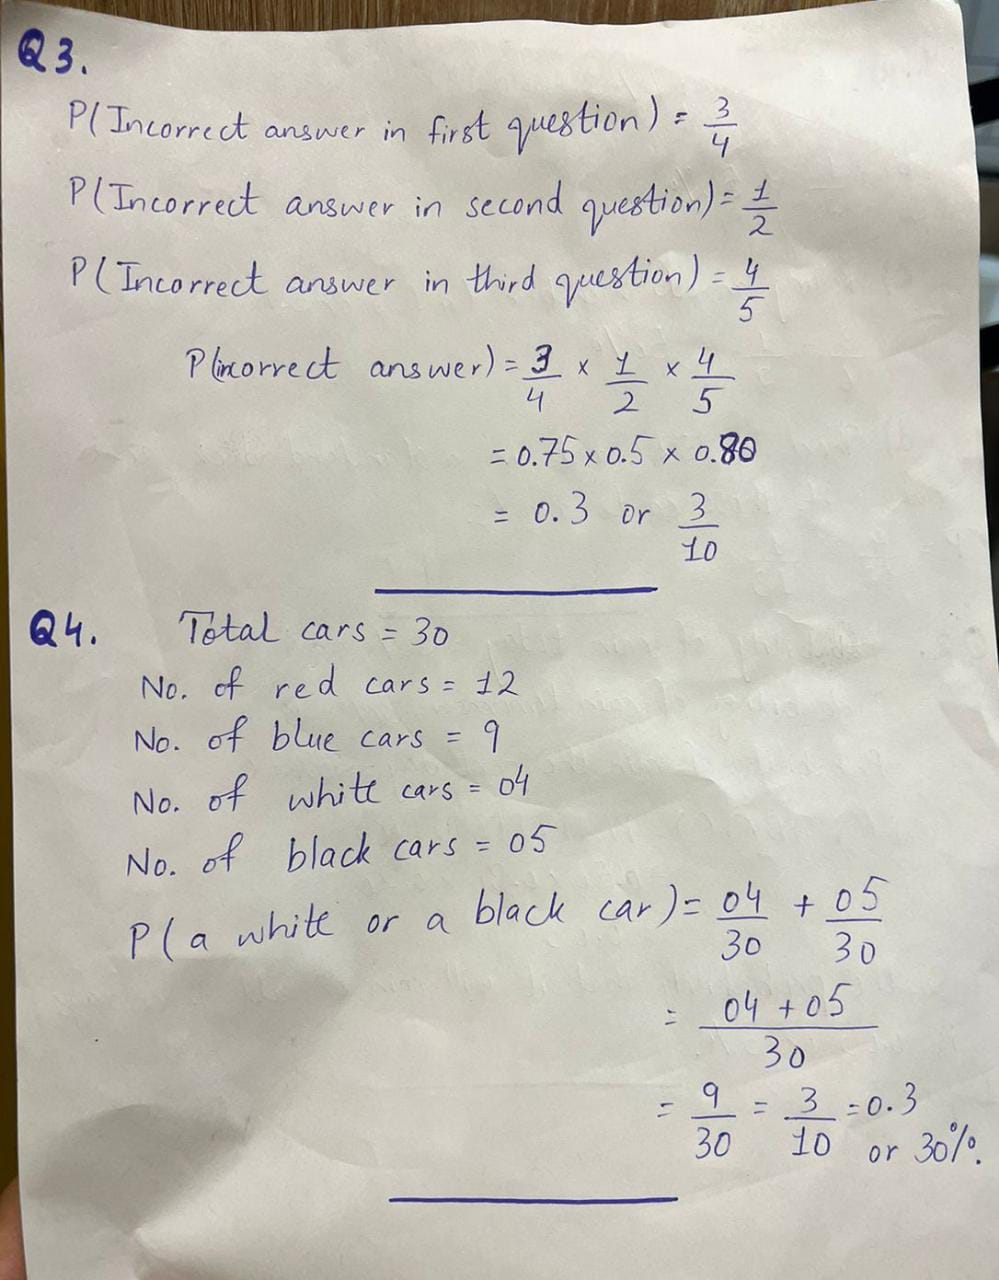 Q3.
P(Incorrect answer in first question) = 3/4
P(Incorrect answer in second question) = 1/2
P(Incorrect answer in third question) = 4/5
P(incorrect answer) = 3/4 x 1/2 x 4/5
= 0.75 x 0.5 x 0.80
= 0.3 or 3/10
Q4. Total cars = 30
No. of red cars = 12
No. of blue cars = 9
No. of white cars = 04
No. of black cars = 05
P(a white or a black car) = 04/30 + 05/30
= 04 + 05/30
= 9/30 = 3/10 = 0.3
or 30%.